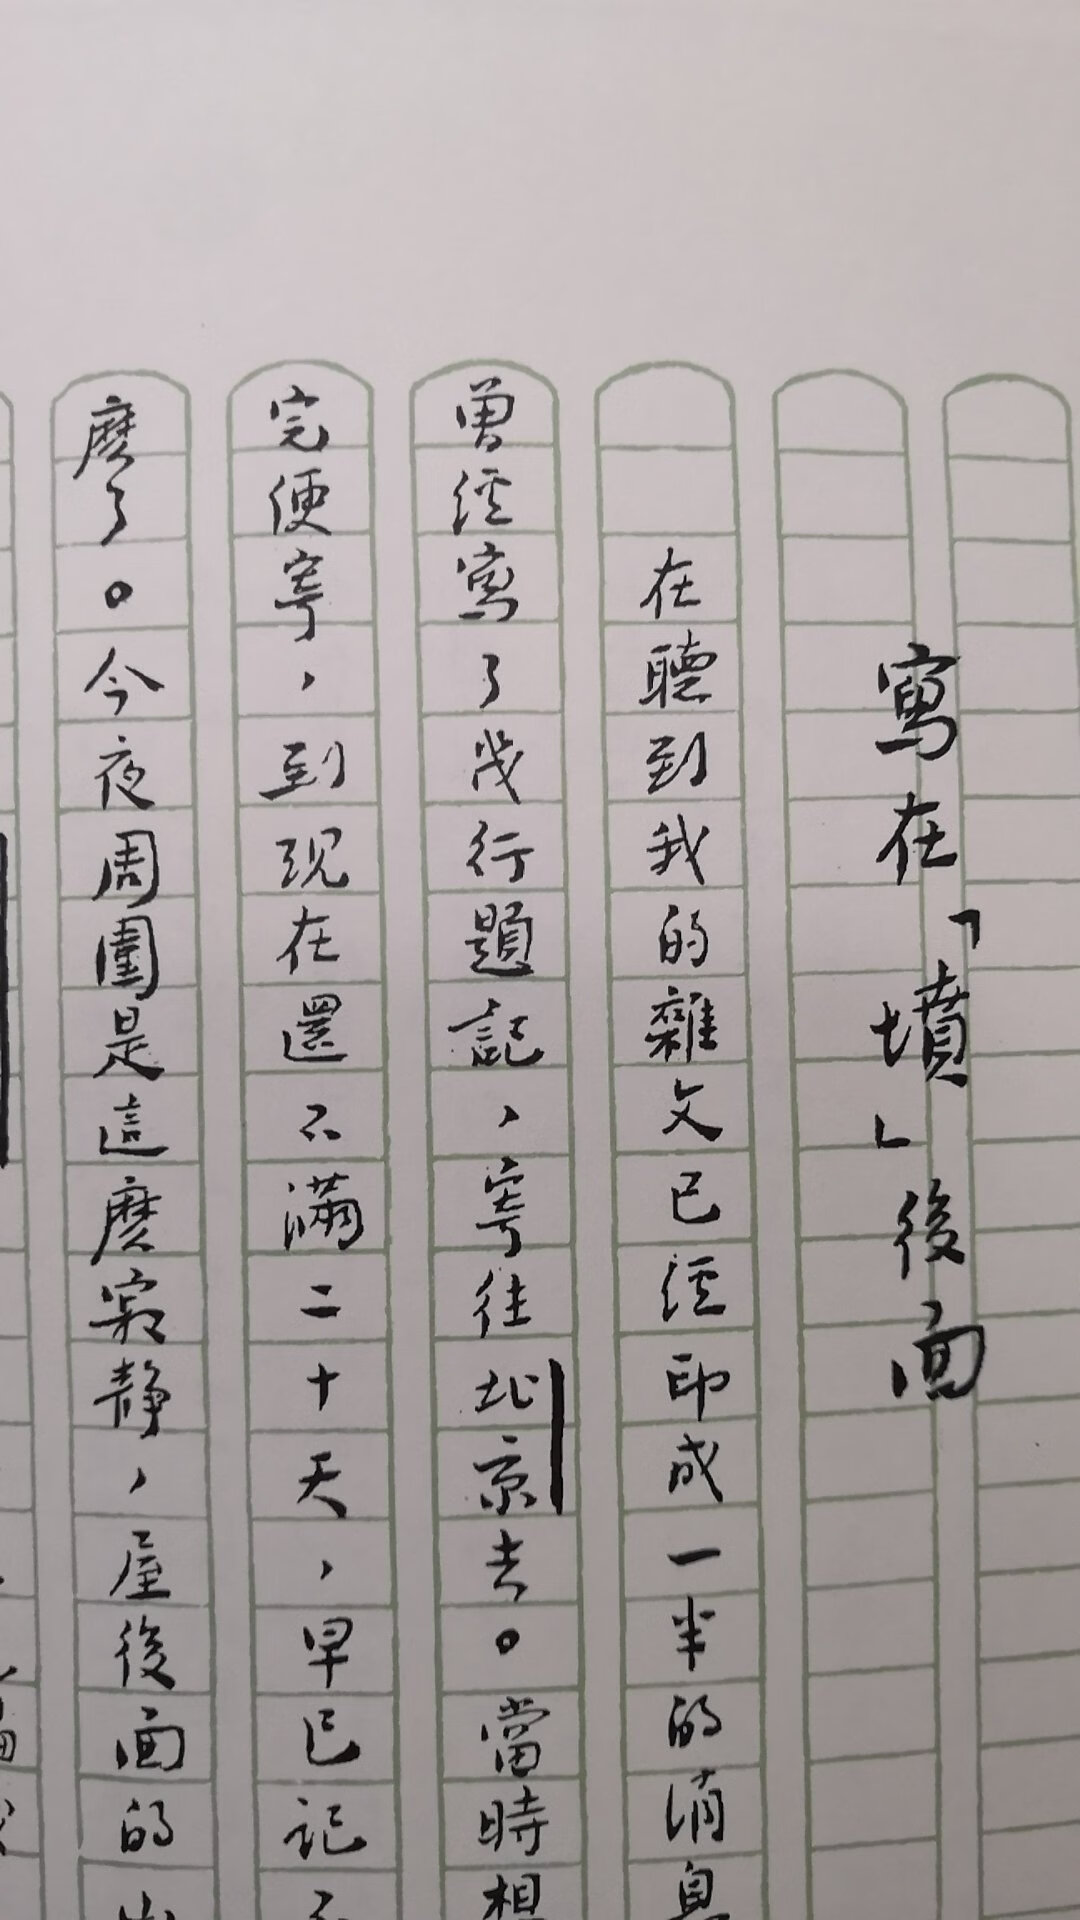 寫在「墳」後面
在聽到我的雜文已經印成一半的消息
曾經寫了幾行題記，寄往北京去。當時想
完便寄，到現在還不滿二十天，早已記不
麽了。今夜周圍是這麽寂静，屋後面的山